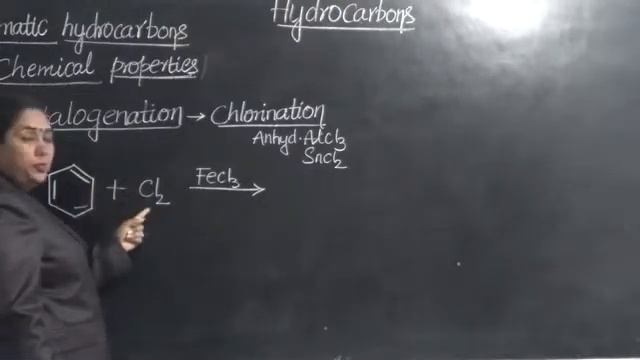 Hydrocarbons
matic hydrocarbons
Chemical properties
alogenation → Chlorination
Anhyd. AlCl3
SnCl2
+ Cl2 FeCl3 →